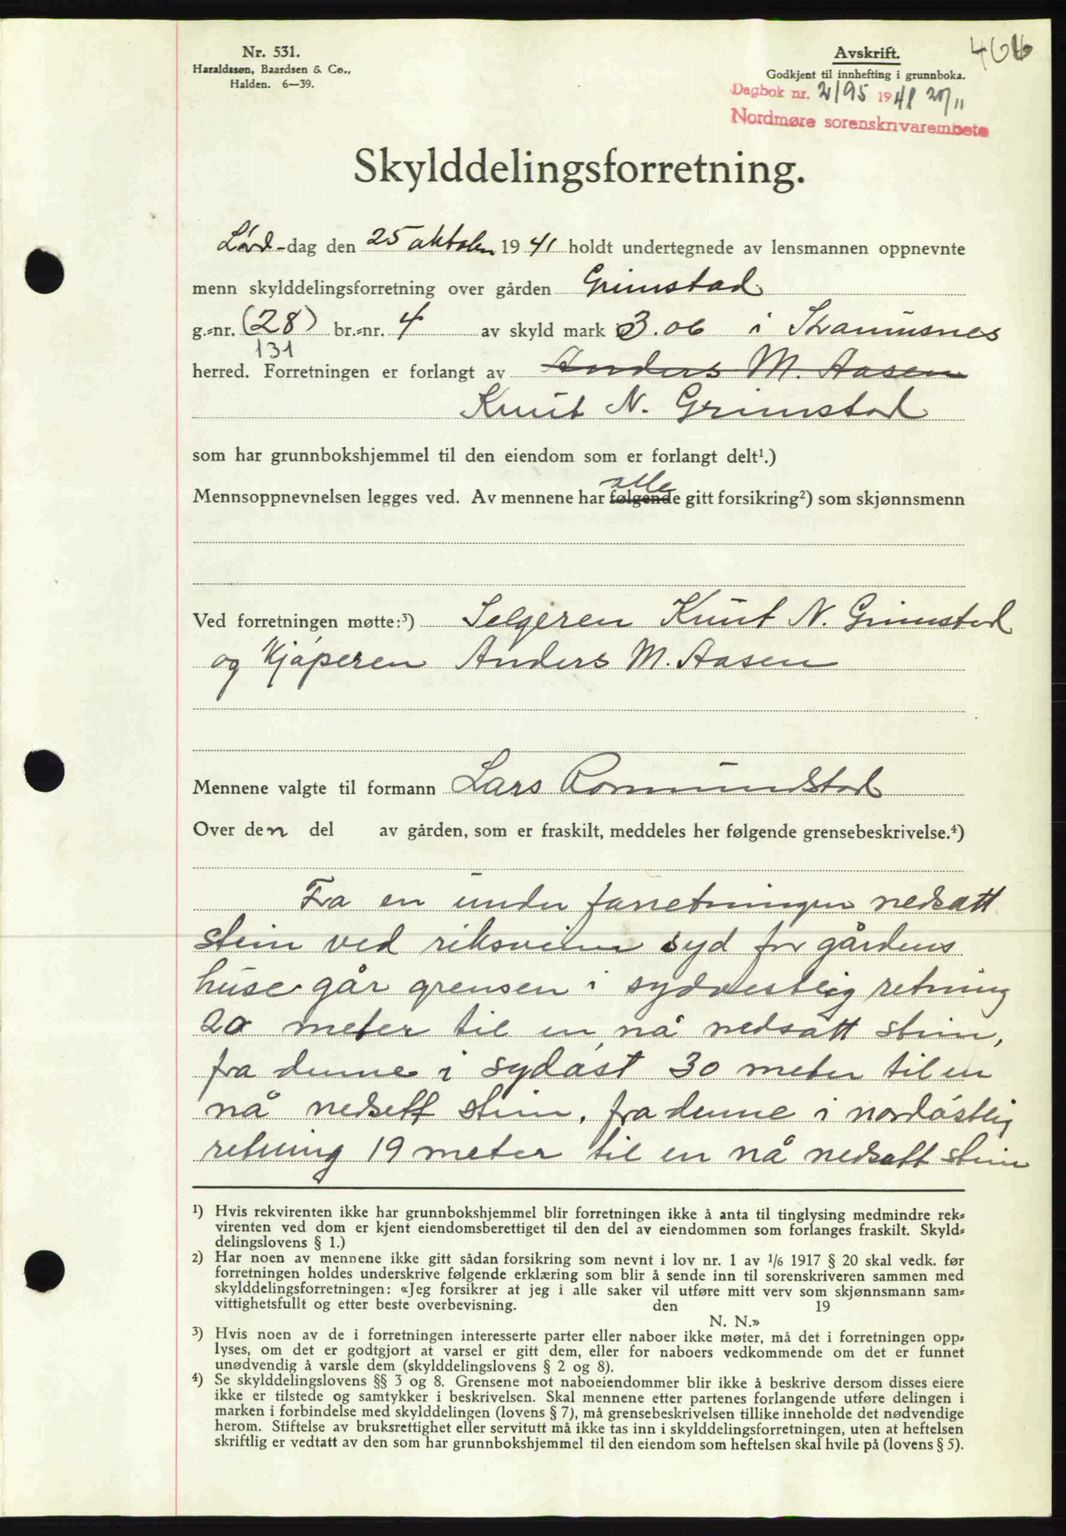 Nr. 531.
Haraldssen, Baardsen & Co.,
Halden. 6—39.
Avskrift.
Godkjent til innhefting i grunnboka.
466
Dagbok nr. 2195 1941 27/11
Nordmøre sorenskrivarembete
Skylddelingsforretning.
Lør-dag den 25 oktober 1941 holdt undertegnede av lensmannen oppnevnte
menn skylddelingsforretning over gården Grimstad
g.-nr. (28) br.-nr. 4 av skyld mark 3.06 i Straumsnes
131
herred. Forretningen er forlangt av Anders M. Aasen
Knut N. Grimstad
som har grunnbokshjemmel til den eiendom som er forlangt delt¹.)
alle
Mennsoppnevnelsen legges ved. Av mennene har følgende gitt forsikring²) som skjønnsmenn
Ved forretningen møtte:³) Selgeren Knut N. Grimstad
og kjøperen Anders M. Aasen
Mennene valgte til formann Lars Romundstad
Over den del av gården, som er fraskilt, meddeles her følgende grensebeskrivelse.⁴)
Fra en under forretningen nedsatt
stein ved riksveien syd for gårdens
huse går grensen i sydvestlig retning
20 meter til en nå nedsatt stein,
fra denne i sydøst 30 meter til en
nå nedsett stein, fra denne i nordøstlig
retning 19 meter til en nå nedsatt stein
¹) Hvis rekvirenten ikke har grunnbokshjemmel blir forretningen ikke å anta til tinglysing medmindre rek-
virenten ved dom er kjent eiendomsberettiget til den del av eiendommen som forlanges fraskilt. Skyld-
delingslovens § 1.)
²) Har noen av mennene ikke gitt sådan forsikring som nevnt i lov nr. 1 av 1/6 1917 § 20 skal vedk. før
forretningen holdes underskrive følgende erklæring som blir å sende inn til sorenskriveren sammen med
skylddelingsforretningen: «Jeg forsikrer at jeg i alle saker vil utføre mitt verv som skjønnsmann sam-
vittighetsfullt og etter beste overbevisning. den 19
N. N.»
³) Hvis noen av de i forretningen interesserte parter eller naboer ikke møter, må det i forretningen opp-
lyses, om det er godtgjort at varsel er gitt dem, eller for naboers vedkommende om det er funnet
unødvendig å varsle dem (skylddelingslovens § 2 og 8).
⁴) Se skylddelingslovens §§ 3 og 8. Grensene mot naboeiendommer blir ikke å beskrive dersom disses eiere
ikke er tilstede og samtykker i beskrivelsen. Skal mennene etter partenes forlangende utføre delingen i
marken i forbindelse med skylddelingen (lovens § 7), må grensebeskrivelsen tillike inneholde det nødvendige
herom. Stiftelse av bruksrettighet eller servitutt må ikke tas inn i skylddelingsforretningen, uten at heftelsen
skriftlig er vedtatt av den som har grunnbokshjemmel til den eiendom som heftelsen skal hvile på (lovens § 5).